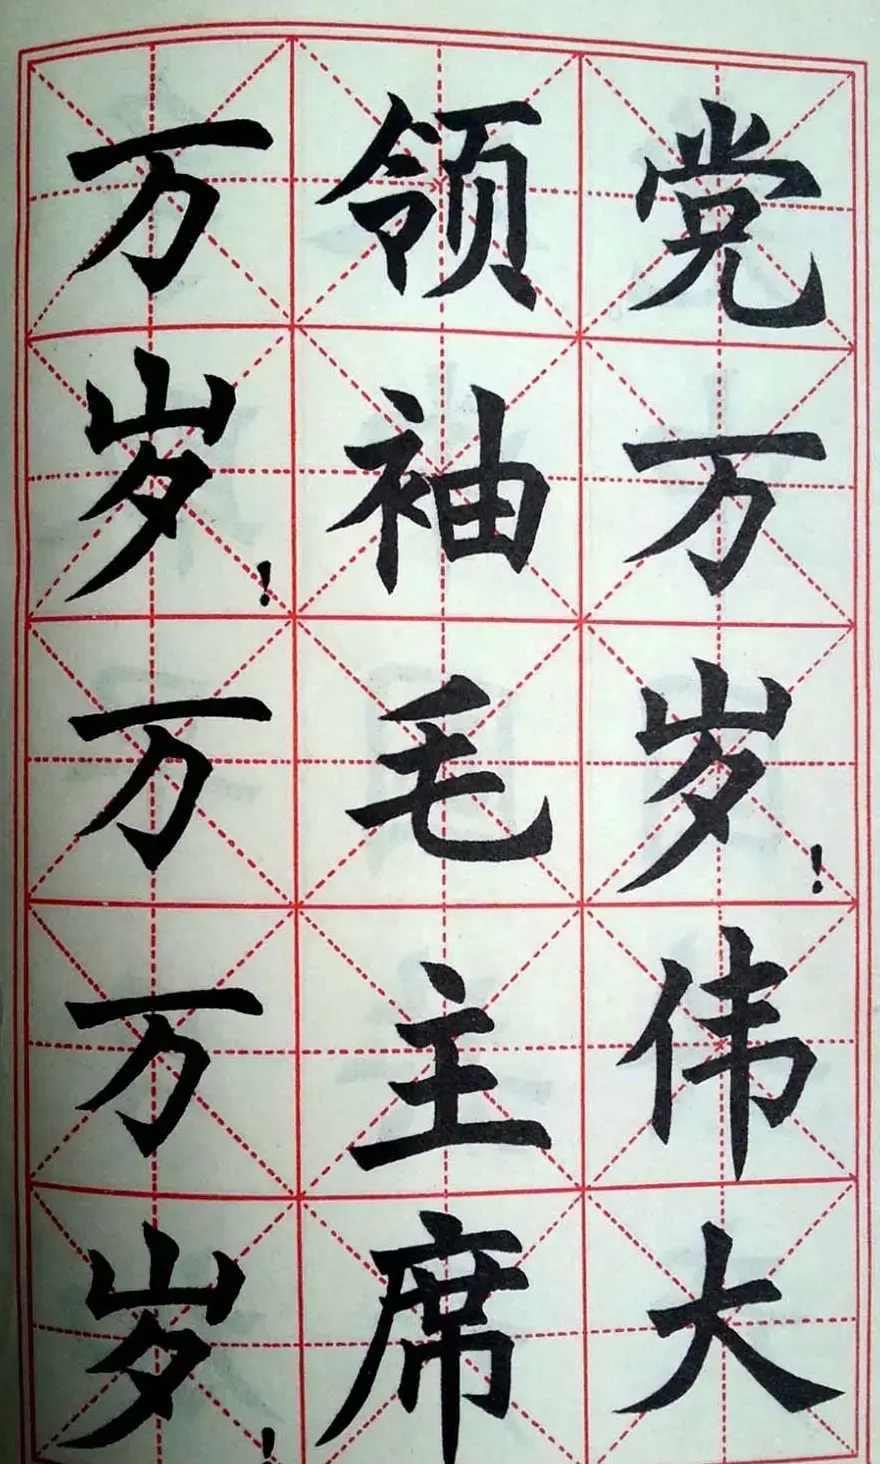 党万岁!伟大
领袖毛主席
万岁!万万岁!